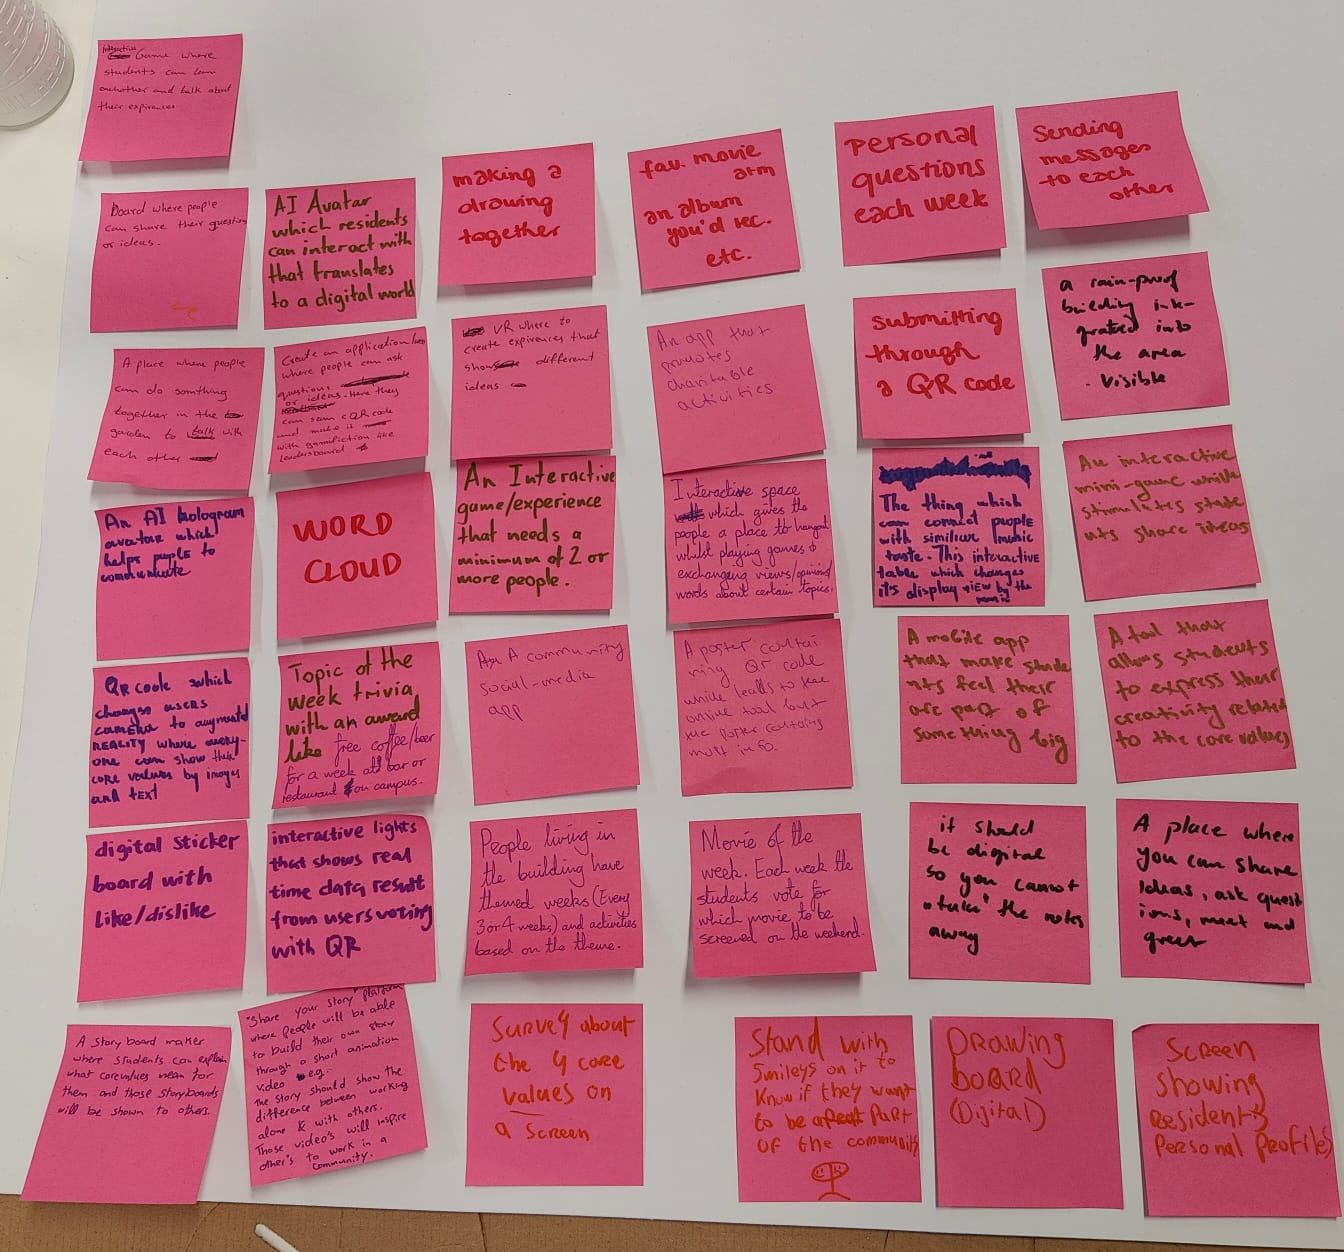 Game where
students can learn
eachother and talk about
their expirences
Board where people
can share their question
or ideas.
AI Avatar
which residents
can interact with
that translates
to a digital world
making a
drawing
together
fav. movie
arm
an album
you'd rec.
etc.
Personal
questions
each week
Sending
messages
to each
other
A place where people
can do somthing
together in the
garden to talk with
each other
Create an application
where people can ask
questions
or ideas. Here they
can scan a QR code
and make it
with gamifiction like
leadersboard
VR where to
create expirences that
show different
ideas
An app that
promotes
charitable
activities
Submitting
through
a QR code
a rain-proof
building ink-
grated into
the area
- visible
An AI hologram
avatar which
helps people to
communicate
WORD
CLOUD
An Interactive
game/experience
that needs a
minimum of 2 or
more people.
Interactive space
which gives the
people a place to hangout
whilst playing games &
exchanging views/opinions/
words about certain topics.
The thing which
can connect people
with similiar music
taste. This interactive
table which changes
it's display view by the
An interactive
mini-game while
stimulates stude
nts share ideas
QR code which
changes users
camera to augmented
REALITY where every-
one can show their
core values by images
and text
Topic of the
week trivia
with an award
like free coffee/beer
for a week at bar or
restaurant on campus.
A community
social-media
app
A poster contai
ning QR code
while leads to the
online tool but
the poster contains
most info.
A mobile app
that make stude
nts feel their
are part of
something big
A tool that
allows students
to express their
creativity related
to the core values
digital sticker
board with
like/dislike
interactive lights
that shows real
time data result
from users voting
with QR
People living in
the building have
themed weeks (Every
3 or 4 weeks) and activities
based on the theme.
Movie of the
week. Each week the
students vote for
which movie to be
screened on the weekend.
it should
be digital
so you cannot
"take" the notes
away
A place where
you can share
Ideas, ask quest
ions, meet and
greet
A Story board maker
where students can explain
what corevalues mean for
them and those storyboards
will be shown to others.
"Share your story" platform
where people will be able
to build their own story
through a short animation
video e.g.
The story should show the
difference between working
alone & with others.
Those video's will inspire
other's to work in a
community.
Survey about
the 4 core
values on
a screen
Stand with
Smileys on it to
Know if they want
to be a part
of the community
Drawing
board
(Digital)
Screen
showing
Residents
Personal Profiles